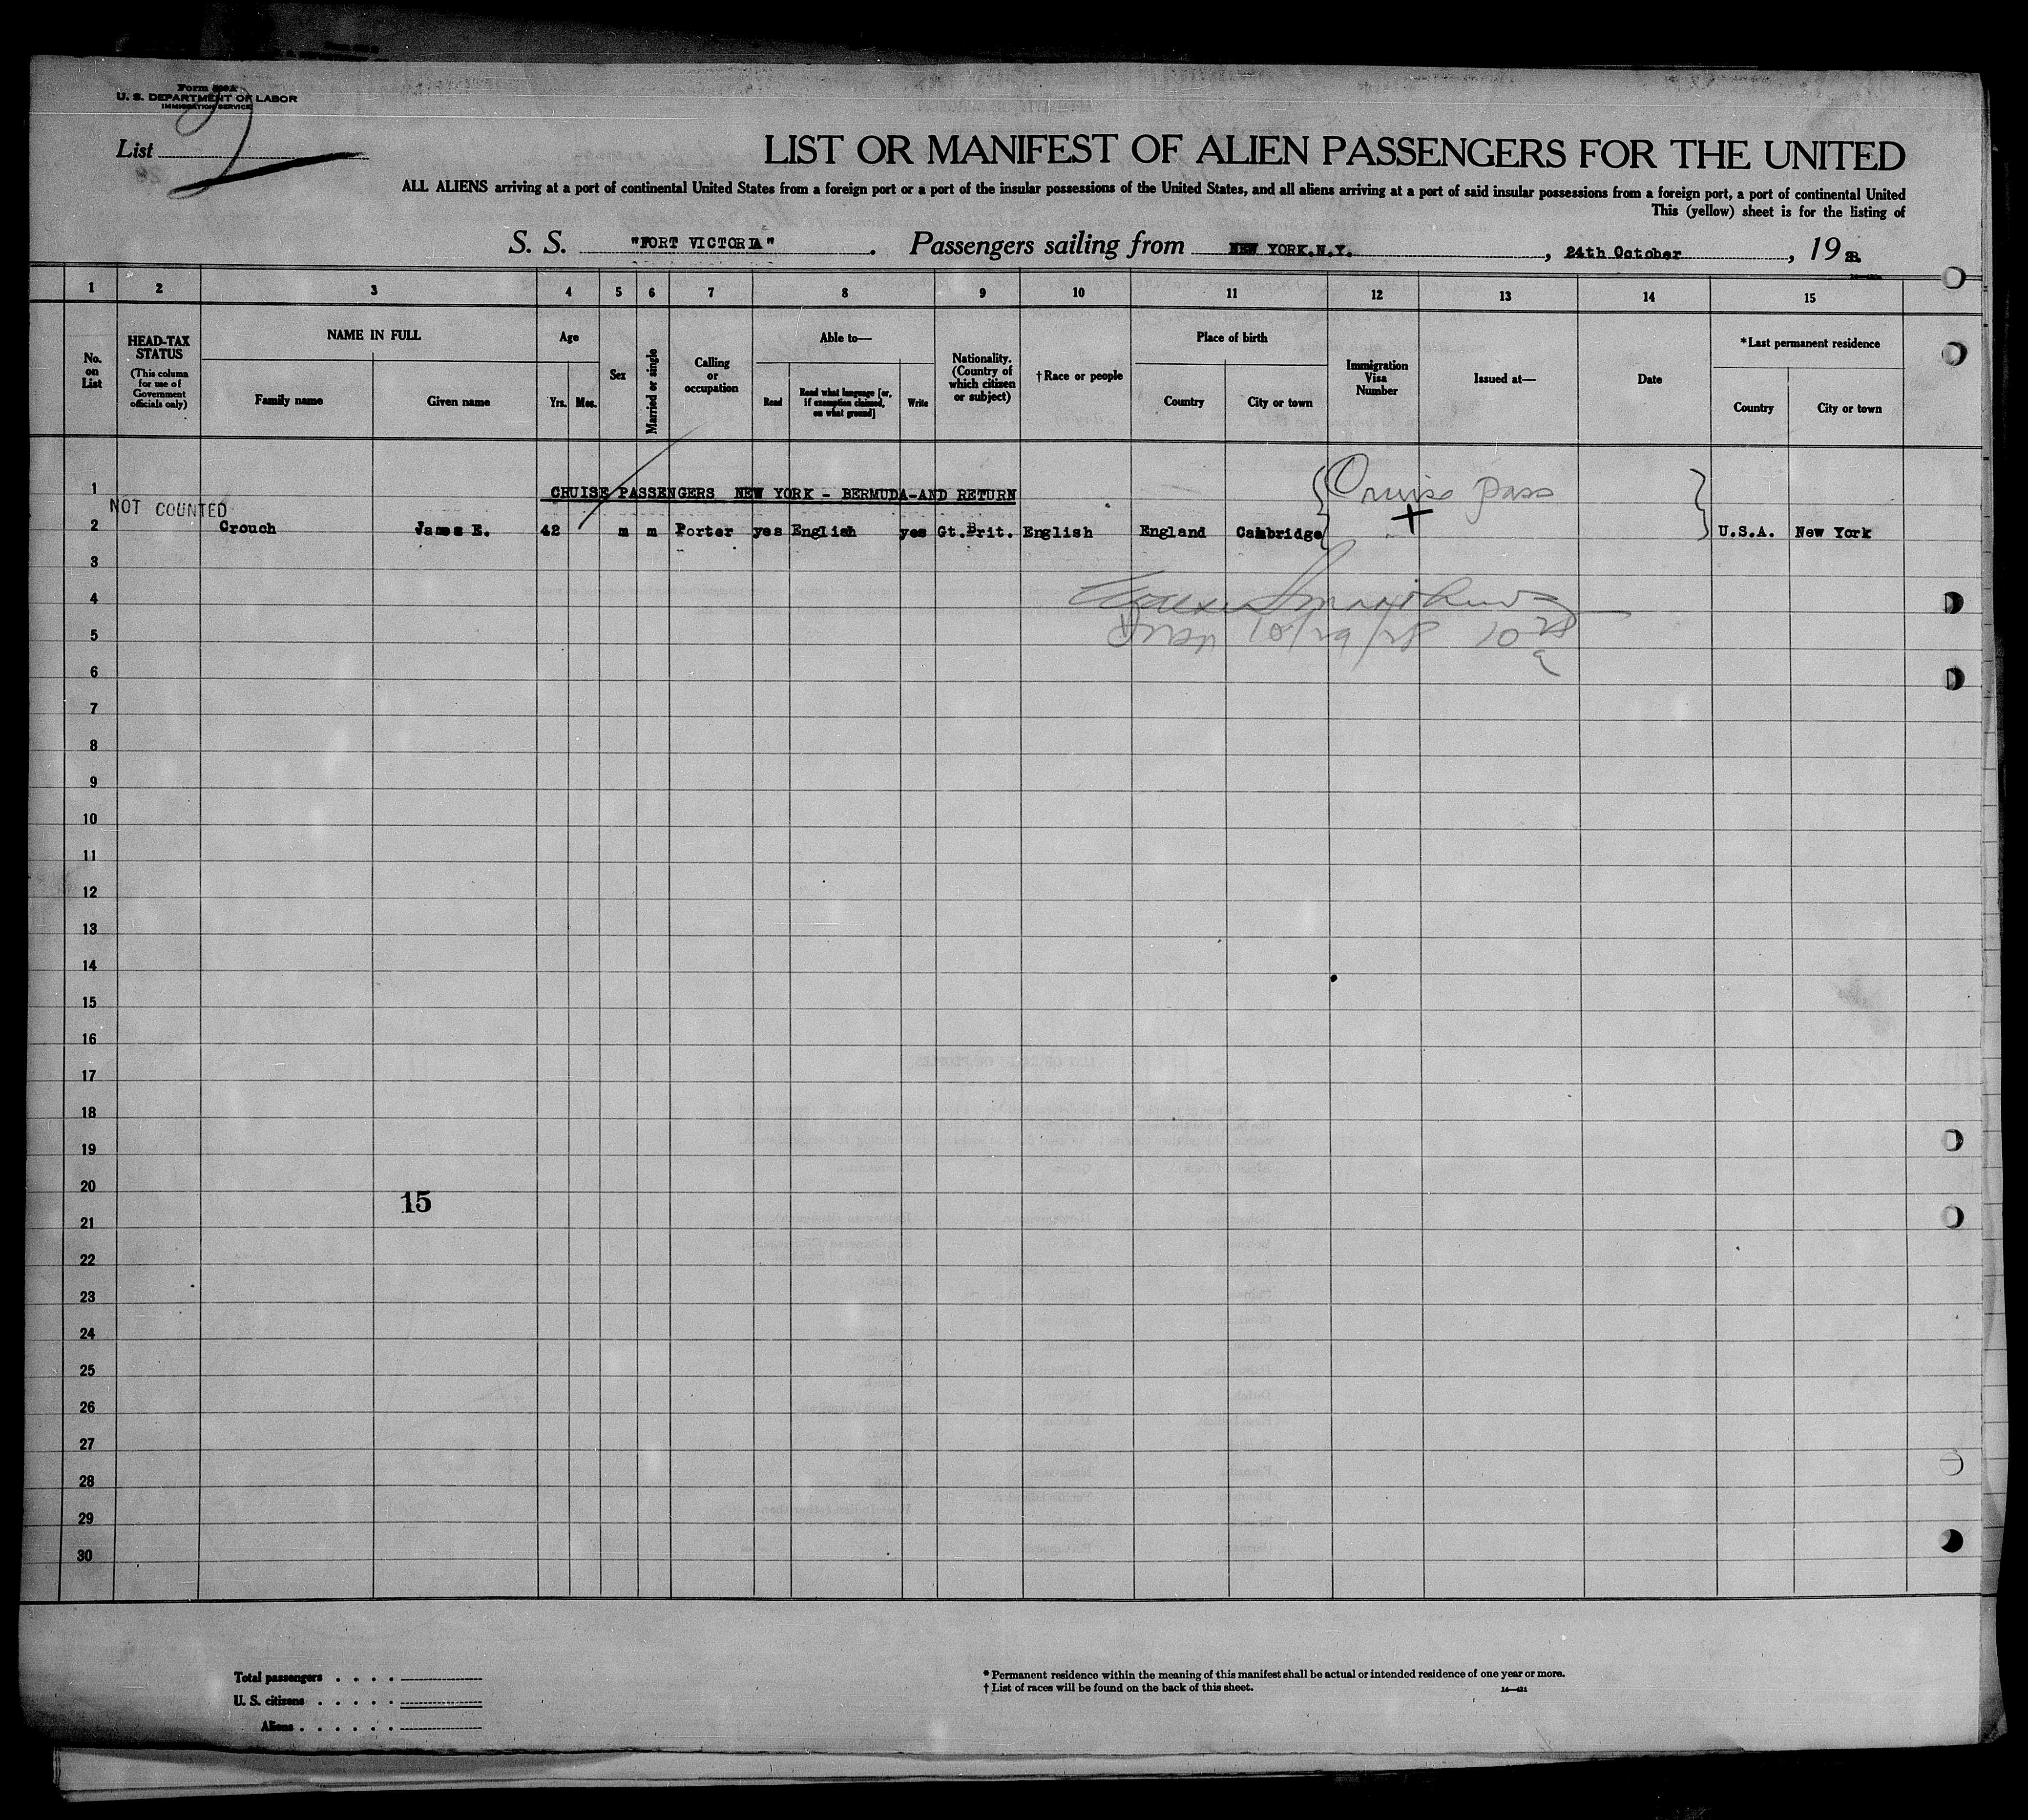 Form 500A
U. S. DEPARTMENT OF LABOR
IMMIGRATION SERVICE
List
LIST OR MANIFEST OF ALIEN PASSENGERS FOR THE UNITED
ALL ALIENS arriving at a port of continental United States from a foreign port or a port of the insular possessions of the United States, and all aliens arriving at a port of said insular possessions from a foreign port, a port of continental United
This (yellow) sheet is for the listing of
S. S. "FORT VICTORIA". Passengers sailing from NEW YORK.N.Y., 24th October, 19
1 2 3 4 5 6 7 8 9 10 11 12 13 14 15
No. on List
HEAD-TAX STATUS (This column for use of Government officials only)
NAME IN FULL
Family name Given name
Age
Yrs. Mos.
Sex
Married or single
Calling or occupation
Able to—
Read Read what language [or, if exemption claimed, on what ground] Write
Nationality. (Country of which citizen or subject)
†Race or people
Place of birth
Country City or town
Immigration Visa Number
Issued at—
Date
*Last permanent residence
Country City or town
1 CRUISE PASSENGERS NEW YORK - BERMUDA-AND RETURN Cruise pass
NOT COUNTED
2 Crouch James E. 42 m m Porter yes English yes Gt.Brit. English England Cambridge U.S.A. New York
3
4
5 10/29/28 10
6
7
8
9
10
11
12
13
14
15
16
17
18
19
20
15
21
22
23
24
25
26
27
28
29
30
Total passengers . . . .
U. S. citizens . . . . .
Aliens . . . . . .
* Permanent residence within the meaning of this manifest shall be actual or intended residence of one year or more.
† List of races will be found on the back of this sheet.
14—421